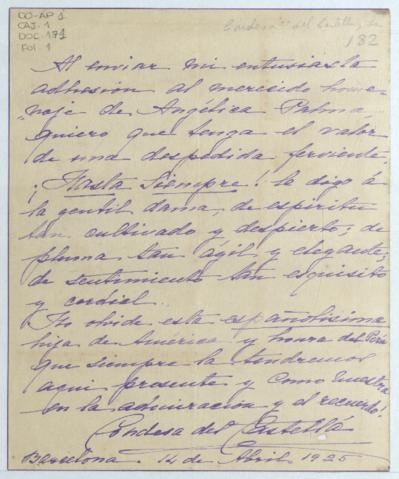 DO-AP 1
CAJ. 1
DOC. 171
Fol 1
Condesa del Castellá
182
Al enviar mi entusiasta
adhesión al merecido home-
naje de Angélica Palma
quiero que tenga el valor
de una despedida ferviente.
¡Hasta siempre! le digo á
la gentil dama, de espíritu
tan cultivado y despierto; de
pluma tan ágil y elegante;
de sentimiento tan esquisito
y cordial...
No olvide esta españolísima
hija de America y honra del Perú
que siempre la tendremos
aqui presente y como nuestra
en la admiración y el recuerdo!
Condesa del Castellá
Barcelona 14 de Abril 1925